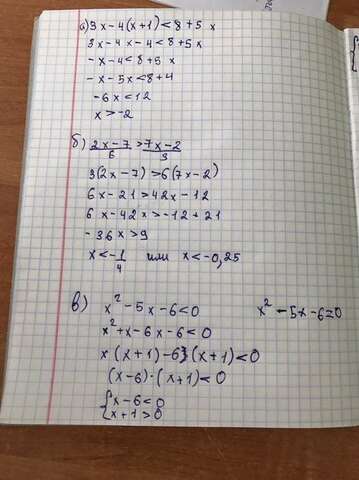 а) 3x-4(x+1)<8+5x
3x-4x-4<8+5x
-x-4<8+5x
-x-5x<8+4
-6x<12
x>-2
б) (2x-7)/6 > (7x-2)/3
3(2x-7)>6(7x-2)
6x-21>42x-12
6x-42x>-12+21
-36x>9
x<-1/4 или x<-0,25
в) x²-5x-6<0 x²-5x-6=0
x²+x-6x-6<0
x(x+1)-6(x+1)<0
(x-6)·(x+1)<0
{x-6<0
x+1>0